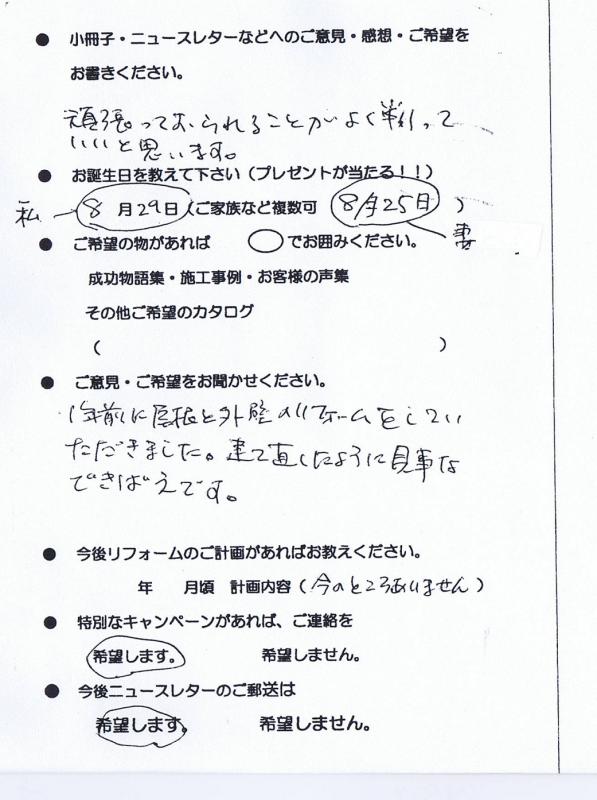 ● 小冊子・ニュースレターなどへのご意見・感想・ご希望を
お書きください。
頑張っておられることがよく判って
いいと思います。
● お誕生日を教えて下さい(プレゼントが当たる!!)
私 8 月29日(ご家族など複数可 8月25日 )
妻
● ご希望の物があれば ◯でお囲みください。
成功物語集・施工事例・お客様の声集
その他ご希望のカタログ
( )
● ご意見・ご希望をお聞かせください。
1年前に屋根と外壁のリフォームをしてい
ただきました。建て直したように見事な
できばえです。
● 今後リフォームのご計画があればお教えください。
年 月頃 計画内容(今のところありません)
● 特別なキャンペーンがあれば、ご連絡を
希望します。 希望しません。
● 今後ニュースレターのご郵送は
希望します。 希望しません。